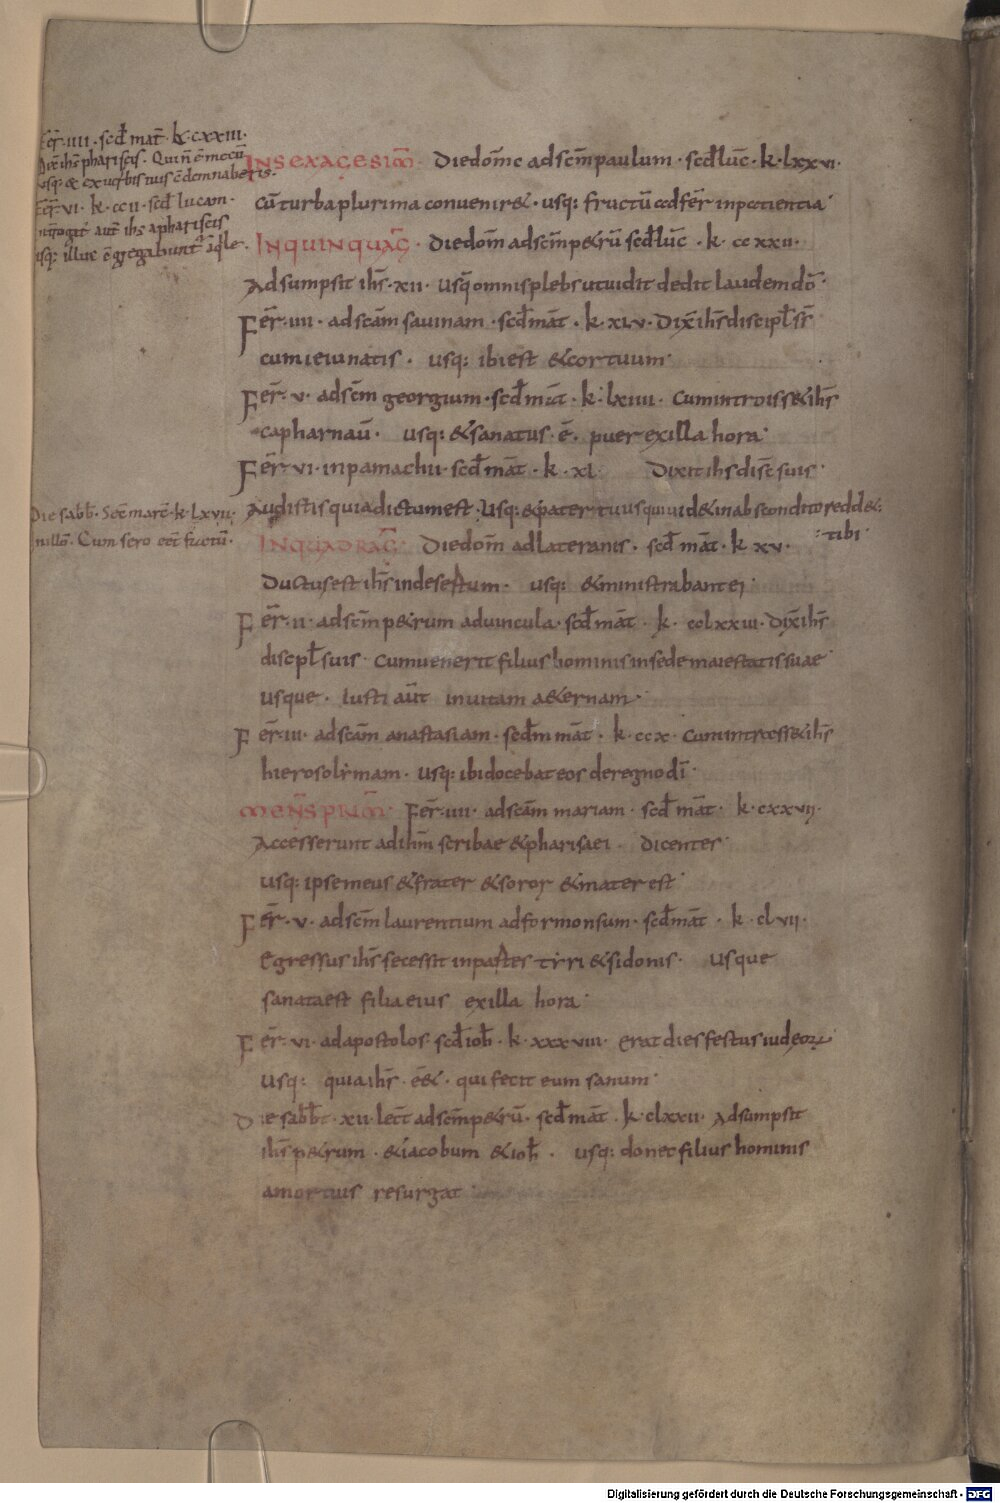 Fēr · IIII · scđ mat̄ · k̄ cxxiii ·
Dix̄ ihs̄ phariseis · Qui n̄ ē mecū
usq: & ex uerbis tuis cōdemnaberis ·
Fēr · vi · k · ccii · scđ lucam ·
usq: illuc cōgregabunt̄ & aq̄le ·
INSEXAGESIM̄ · Diedom̄c adsc̄mpaulum · scđluc̄ · k · lxxvi ·
Cū turba plurima conuenir& · usq: fructū adfēr inpatientia
INQUINQUAG̅ · Diedom̄ adsc̄mp&rū scđluc̄ · k · ccxxii ·
Adsumpsit ihs̄ · xii · usq̄ omnisplebs utuidit dedit laudem dō ·
Fēr · IIII · adsc̄am sauinam · scđmāt · k · xlv · Dix̄ ihs̄ discipl̄ sr̄
cumieiunatis · usq: ibi est & cor tuum ·
Fēr · v · adsc̄m georgium · scđ māt · k · lxiiii · Cumintroiss& ihs̄
capharnaū · usq: & sanatus · ē · puer exilla hora ·
Fēr · vi · inpamachii · scđ māt · k · xl Dixit ihs̄ disc̄ suis ·
Die sab̄b · Sec̄ marc̄ · k · lxvii ·
Cum sero eēt factū ·
Audistis quia dictum est · Usq: & pater tuus qui uid& inabscondito redd& ·
tibi ·
INQUADRAG̅ · Diedom̄ adlateranis · scđ māt · k xv ·
Ductus est ihs̄ indesertum · usq: & ministrabant ei ·
Fēr · II · adsc̄m p&rum aduincula · scđ māt · k · cclxxiii · Dix̄ ihs̄
discpl̄ suis · Cumuenerit filius hominis in sede maiestatis suae
usque · Iusti aūt inuitam a&ernam ·
Fēr · III · adsc̄am anastasiam · scđm māt · k · ccx · Cumintrass& ihs̄
hierosolimam · Usq: ibi docebat eos deregno dī ·
MENS̄ PRIM̄ · Fēr · IIII · adsc̄am mariam · scđ māt · k · cxxvii ·
Accesserunt adihm̄ scribae & pharisaei · dicentes ·
Usq: ipse meus & frater & soror & mater est ·
Fēr · v · adsc̄m laurentium adformonsum · scđmāt · k · clvii ·
Egressus ihs̄ secessit inpartes tyri & sidonis · Usque
sanata est filia eius exilla hora ·
Fēr · vi · adapostolos scđ ioh̄ · k · xxxviii · Erat dies festus iudęoꝝ
Usq: quia ihs̄ · ē& · qui fecit eum sanum ·
Die sab̄bt · xii · lect̄ adsc̄mp&rū · scđ māt · k · clxxii · Adsumpsit
ihs̄ p&rum · & iacobum & ioh̄ · usq: donec filius hominis
amortuis resurgat ·
Digitalisierung gefördert durch die Deutsche Forschungsgemeinschaft - DFG